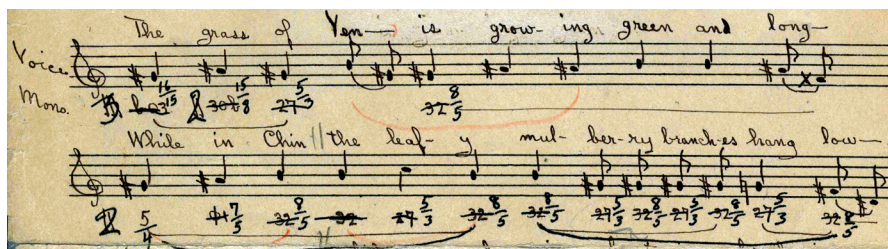 The grass of Yen— is grow- ing green and long—
Voice
Mono.
16/15 15/8 5/3 8/5
While in Chin the leaf- y mul- ber-ry branch-es hang low—
5/4 7/5 8/5 5/3 8/5 8/5 5/3 8/5 5/3 8/5 5/3 8/5